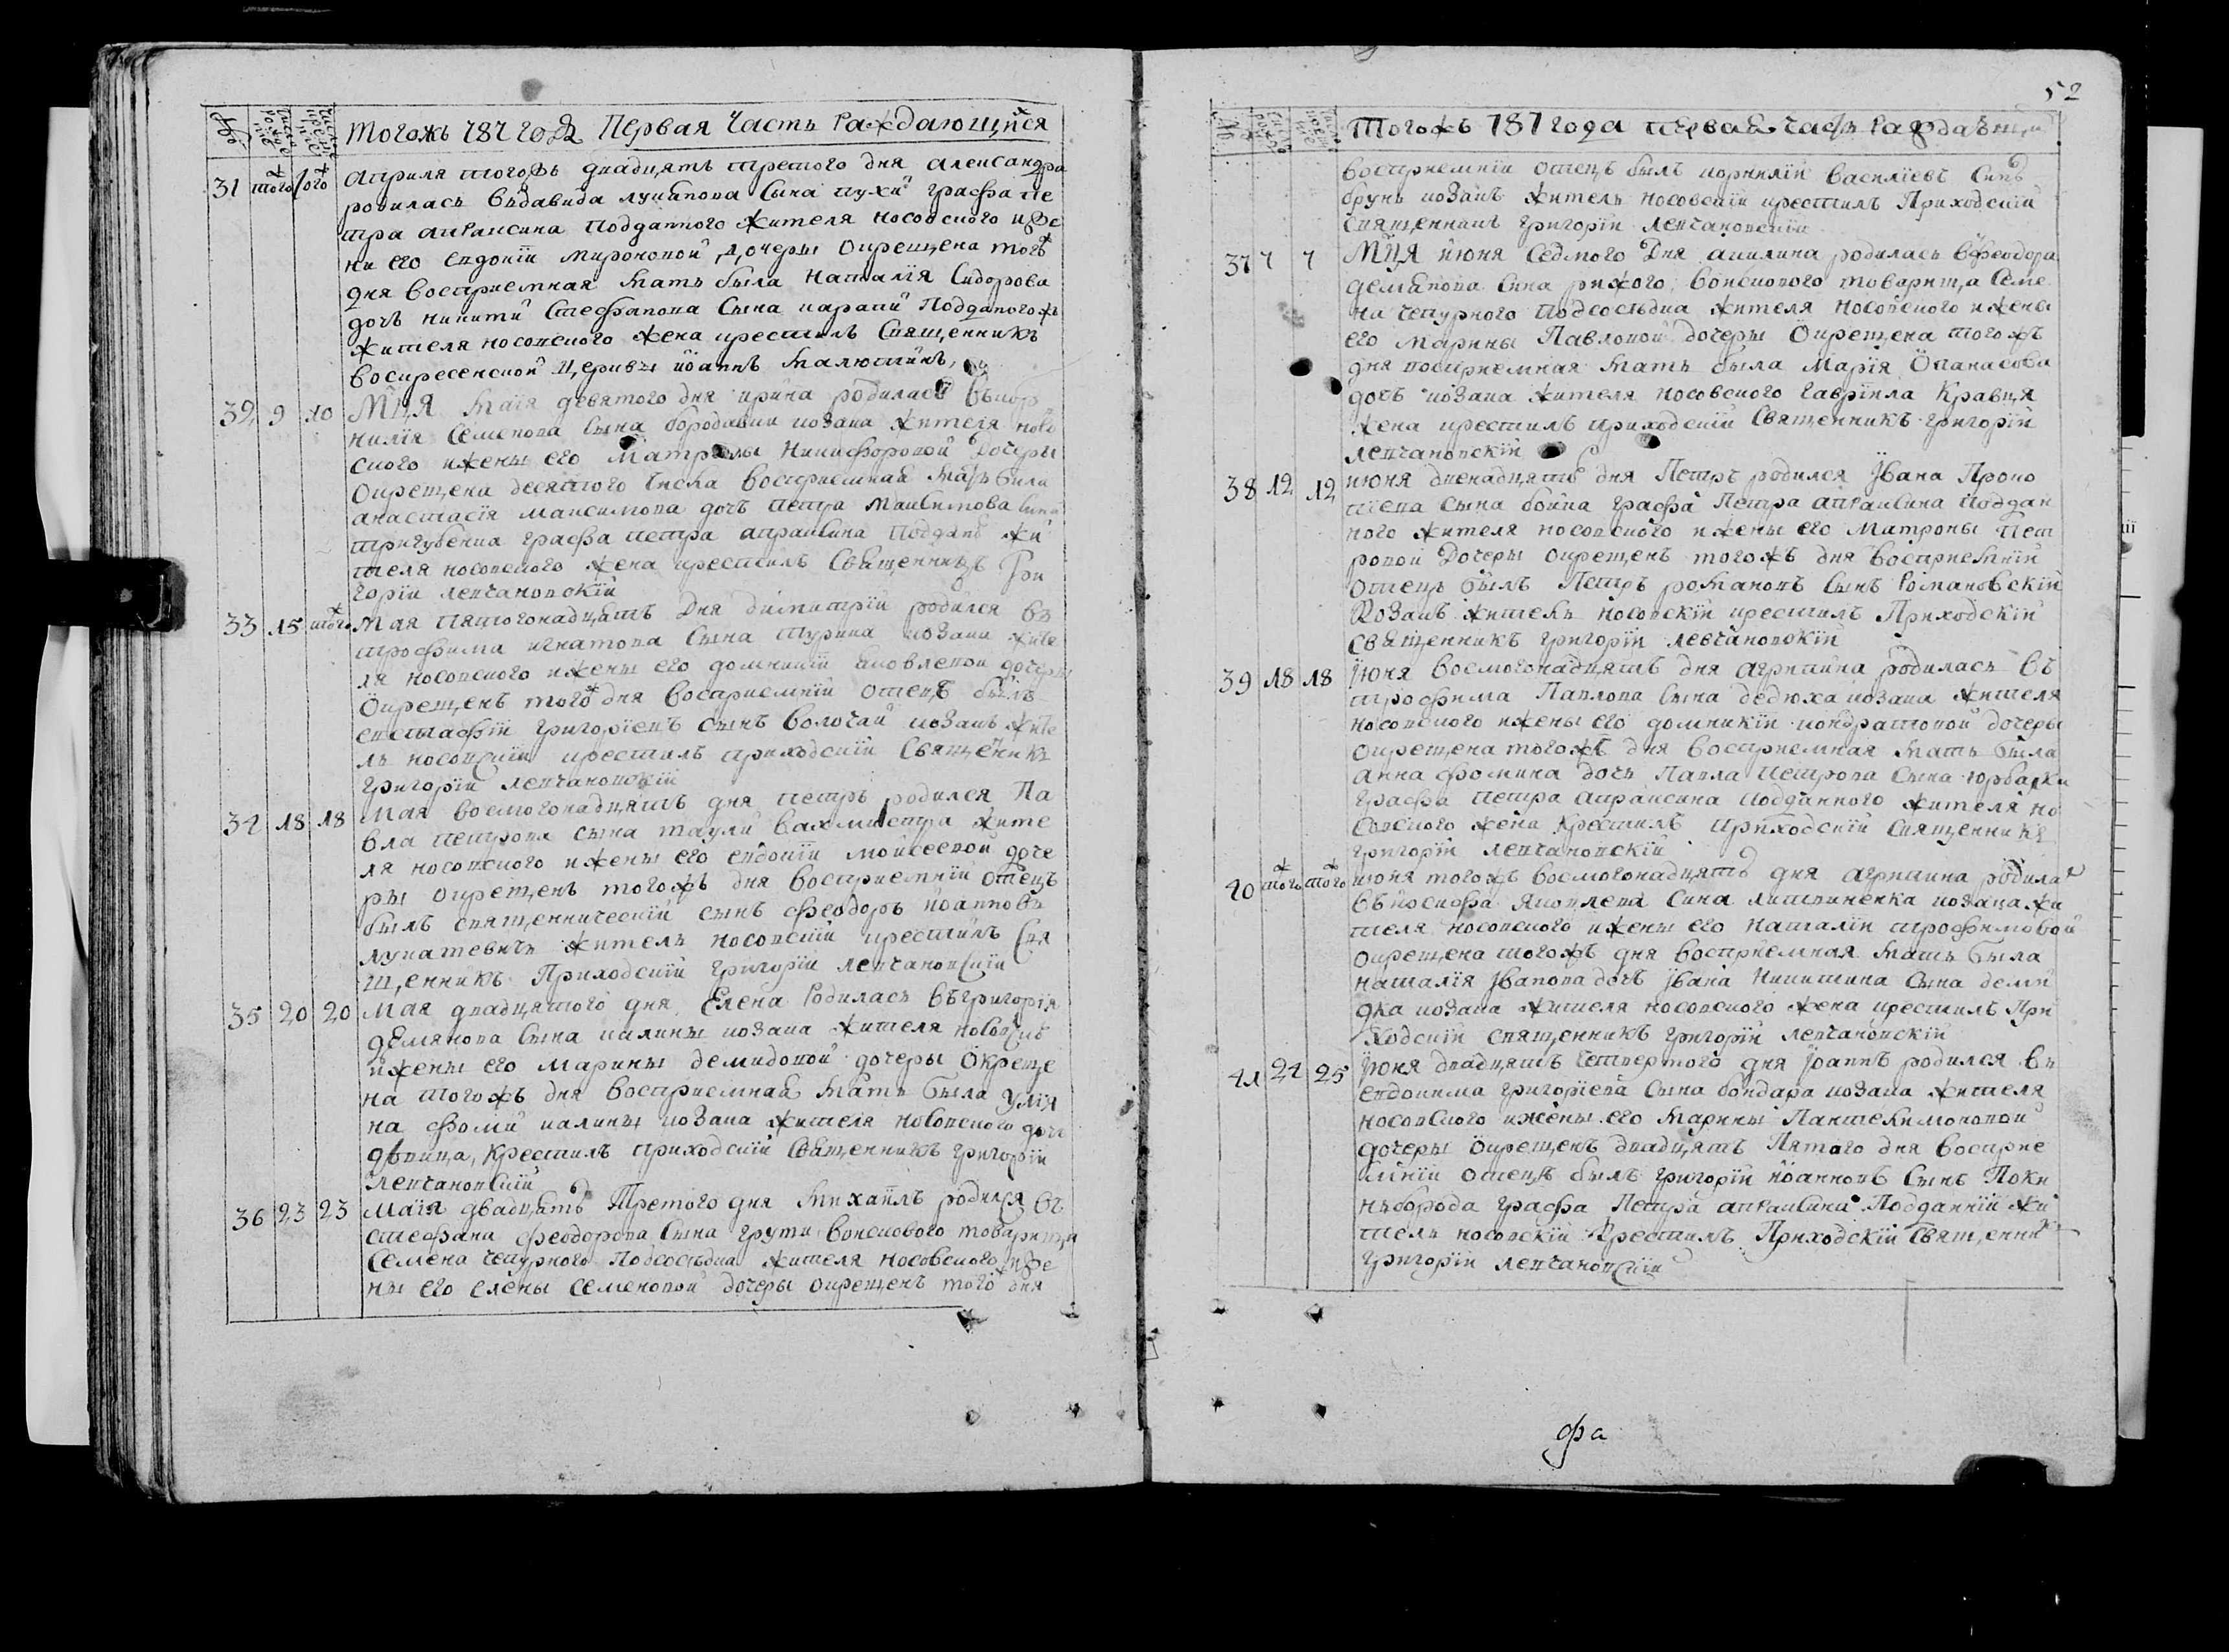 Тогожъ 787 года Первая Часть Раждающихся
31 тогож тогож Априля тогожъ двадцять третого дня Александра
родилась въ Давида Лукянова Сына пухи Графа Пе
тра апраксина Подданного жителя носовского и же
ни его Евдокии Мироновой дочеры Окрещена тогож
дня восприемная мать была Наталия Сидорова
дочь Никити Стефанова Сына Подданогожъ
жителя носовского жена крестилъ Священникъ
воскресенской Церквы Иоаннъ Малютинъ
32 9 10 Мця Маия девятого дня ирина родилась въ Кор
нилия Семенова Сына бородавки козака жителя носо
вского и жены его Матроны Никифоровой дочеры
Окрещена десятого числа восприемная мать била
анастасия максимова дочъ петра Максимова сина
тригубенка графа петра апраксина поддано жи
теля носовского жена крестилъ Священникъ Гри
горий левчановский
33 15 тогож Мая пятогонадцять дня димитрий родился въ
трофима игнатова Сына Турика козака жите
ля носовского и жены его домникии Яковлевой дочеры
Окрещенъ тогож дня восприемний отецъ былъ
евстафий григориевъ сынъ волочай козакъ жите
ль носовский крестилъ приходский Священикъ
григорий левчановский
34 18 18 Мая восмогонадцять дня петръ родился Па
вла петрова сына таули вахмистра жите
ля носовского и жены его евдокии мойсеевой доче
ры окрещенъ тогожъ дня восприемний отецъ
былъ священнический сынъ феодоръ иоанновъ
лукашевичъ житель носовский крестилъ Свя
щенникъ Приходский григорий левчановский
35 20 20 Мая двадцятого дня Елена Родилась въ григория
демянова Сына калины козака жителя носовско
и жены его марины демидовой дочеры Окреще
на тогожъ дня восприемная мать была Улия
на фоми калины козака жителя носовского доч
двица, крестилъ приходский Священникъ григорий
левчановский
36 23 23 Маия двадцять Третого дня михаилъ родился въ
стефана феодорова Сына грути воискового товарища
Семена чепурного Подсосъдка жителя носовского и же
ны его елены Семеновой дочеры окрещенъ того дня
52
Тогожъ 787 года первая часть Раждающи
восприемний отецъ былъ корнилий василиевъ Синъ
брунь козакъ житель носовский крестилъ Приходский
Священникъ григорий левчановский
37 7 7 Мця июня Седмого Дня акилина родилась въ феодора
демянова Сина рижого воискового товарища Семе
на чепурного Подсосъдка жителя носовского и жены
его Марины Павловой дочеры Окрещена тогожъ
дня восприемная мать была Мария Опанасова
дочъ козака жителя носовского гавриила Кравця
жена крестилъ приходский Священникъ григорий
левчановский
38 12 12 июня двенадцять дня Петръ родился Ивана Проко
пиева Сына бойка графа Петра апраксина Поддан
ного жителя носовского и жены его Матроны Пет
ровой Дочеры окрещенъ тогожъ дня восприемний
отецъ былъ Петръ романовъ Сынъ Романовский
Козакъ житель носовский крестилъ Приходский
Священникъ григорий левчановский
39 18 18 Июня восмогонадцять дня агрипина родилась въ
трофима Павлова Сына дедюха козака жителя
носовского и жены его домникии кондратовой дочеры
окрещена тогожъ дня восприемная мать была
анна фомина дочъ Павла петрова Сына юрбарки
графа петра апраксина подданного жителя но
совского жена крестилъ приходский Священникъ
григорий левчановский
40 тогож тогож июня тогожъ восмогонадцять дня агрипина родилас
въ иосифа Яковлева Сина литвиненка козака жи
теля носовского и жены его наталии трофимовой
окрещена тогожъ дня восприемная мать была
наталия Иванова дочъ Ивана Никитина Сына деми
дка козака жителя носовского жена крестилъ При
ходский священникъ григорий левчановский
41 24 25 Июня двадцять четвертого дня Иоаннъ родился въ
евдокима григориева Сына бондара козака жителя
носовского и жены его марины Пантелимоновой
дочеры окрещенъ двадцять Пятого дня восприе
мний отецъ былъ григорий иоанновъ Сынъ Поки
нъборода графа Петра апраксина Подданний жи
тель носовский Крестилъ Приходский Священник
григорий левчановский
фа